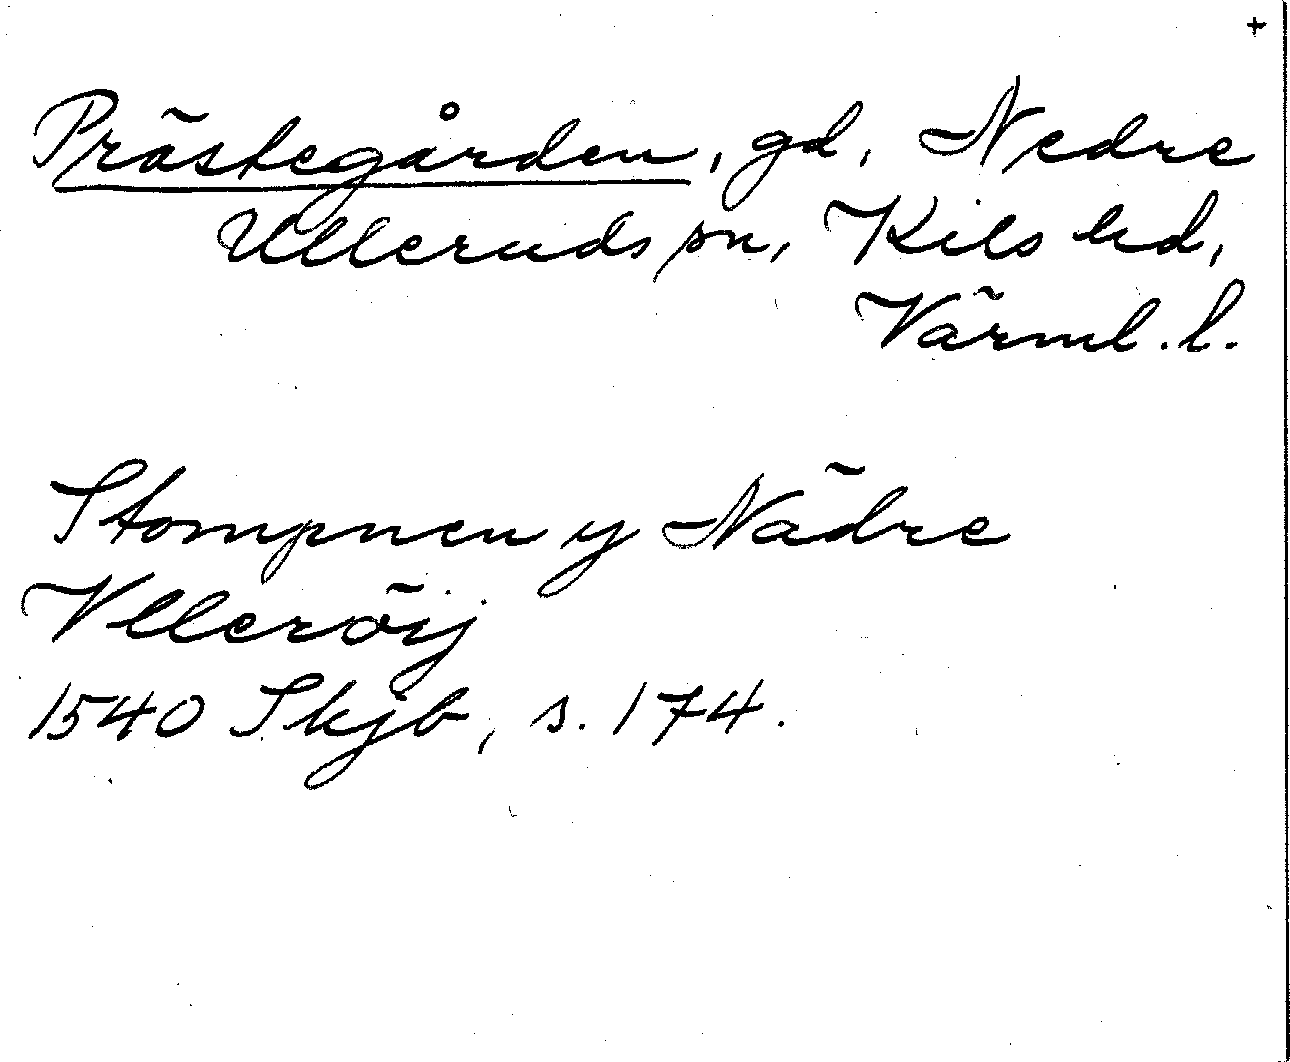 +
Prästegården, gd, Nedre
Ulleruds sn, Kils hd,
Värml. l.
Stompnen y Nädre
Vlleröij
1540 Skjb, s. 174.